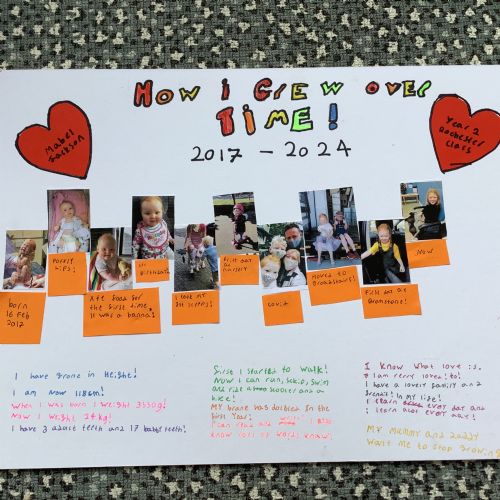 How i Grew over
Time!
2017 - 2024
Mabel
Jackson
Year 2
Rochester
Class
born
16 Feb
2017
Poorly
hips!
Ate food for
the first time,
it was a banna!
1st
Birthday!
I took my
1st steps!
First day
at
nursery
Covid
Moved to
Broadstairs!
First day at
Bramstone!
Now
I have grone in Height!
I am now 118cm!
When I was born I weight 3550g!
Now I weight 24kg!
I have 3 adute teeth and 17 babby teeth!
First I started to walk!
Now I can run, skip, swim
and ride a scooter and a
bike!
My brane has dobled in the
first year!
I can read and write! I also
know lots of words know!
I know what love is,
I am very loved to!
I have a lovely family and
frends! in my life!
I learn every day and
I learn alot every day!
My mummy and daddy
want me to stop growing